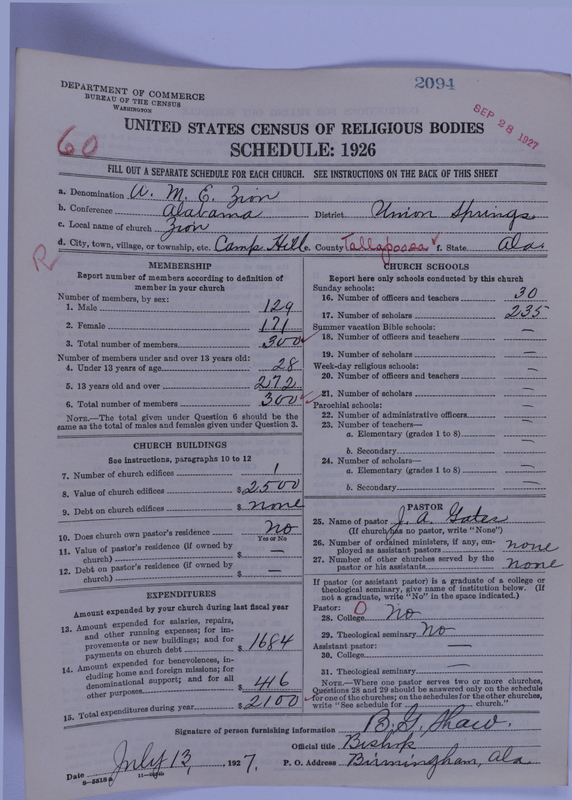 2094
DEPARTMENT OF COMMERCE
BUREAU OF THE CENSUS
WASHINGTON
SEP 28 1927
60
UNITED STATES CENSUS OF RELIGIOUS BODIES
SCHEDULE: 1926
FILL OUT A SEPARATE SCHEDULE FOR EACH CHURCH. SEE INSTRUCTIONS ON THE BACK OF THIS SHEET
a. Denomination A. M. E. Zion
b. Conference Alabama District Union Springs
c. Local name of church Zion
d. City, town, village, or township, etc. Camp Hill e. County Tallapoosa f. State Ala.
R
MEMBERSHIP
Report number of members according to definition of
member in your church
Number of members, by sex:
1. Male 129
2. Female 171
3. Total number of members 300
Number of members under and over 13 years old:
4. Under 13 years of age 28
5. 13 years old and over 272
6. Total number of members 300
NOTE.—The total given under Question 6 should be
same as the total of males and females given under Question 3.
CHURCH BUILDINGS
See instructions, paragraphs 10 to 12
7. Number of church edifices 1
8. Value of church edifices $2500
9. Debt on church edifices $ none
10. Does church own pastor's residence? No
Yes or No
11. Value of pastor's residence (if owned by
church) $ —
12. Debt on pastor's residence (if owned by
church) $ —
EXPENDITURES
Amount expended by your church during last fiscal year
13. Amount expended for salaries, repairs,
and other running expenses; for im-
provements or new buildings; and for
payments on church debt $ 1684
14. Amount expended for benevolences, in-
cluding home and foreign missions; for
denominational support; and for all
other purposes $ 416
15. Total expenditures during year $ 2100
CHURCH SCHOOLS
Report here only schools conducted by this church
Sunday schools:
16. Number of officers and teachers 30
17. Number of scholars 235
Summer vacation Bible schools:
18. Number of officers and teachers —
19. Number of scholars —
Week-day religious schools:
20. Number of officers and teachers —
21. Number of scholars —
Parochial schools:
22. Number of administrative officers —
23. Number of teachers—
a. Elementary (grades 1 to 8) —
b. Secondary —
24. Number of scholars—
a. Elementary (grades 1 to 8) —
b. Secondary —
PASTOR
25. Name of pastor J. A. Gates
(If church has no pastor, write "None")
26. Number of ordained ministers, if any, em-
ployed as assistant pastors none
27. Number of other churches served by the
pastor or his assistants none
If pastor (or assistant pastor) is a graduate of a college or
theological seminary, give name of institution below. (If
not a graduate, write "No" in the space indicated.)
Pastor: 0
28. College No
29. Theological seminary No
Assistant pastor:
30. College —
31. Theological seminary —
NOTE.—Where one pastor serves two or more churches,
Questions 28 and 29 should be answered only on the schedule
for one of the churches; on the schedules for the other churches,
write "See schedule for church."
Signature of person furnishing information B. G. Shaw.
Official title Bishop
Date July 13, 1927. P. O. Address Birmingham, Ala